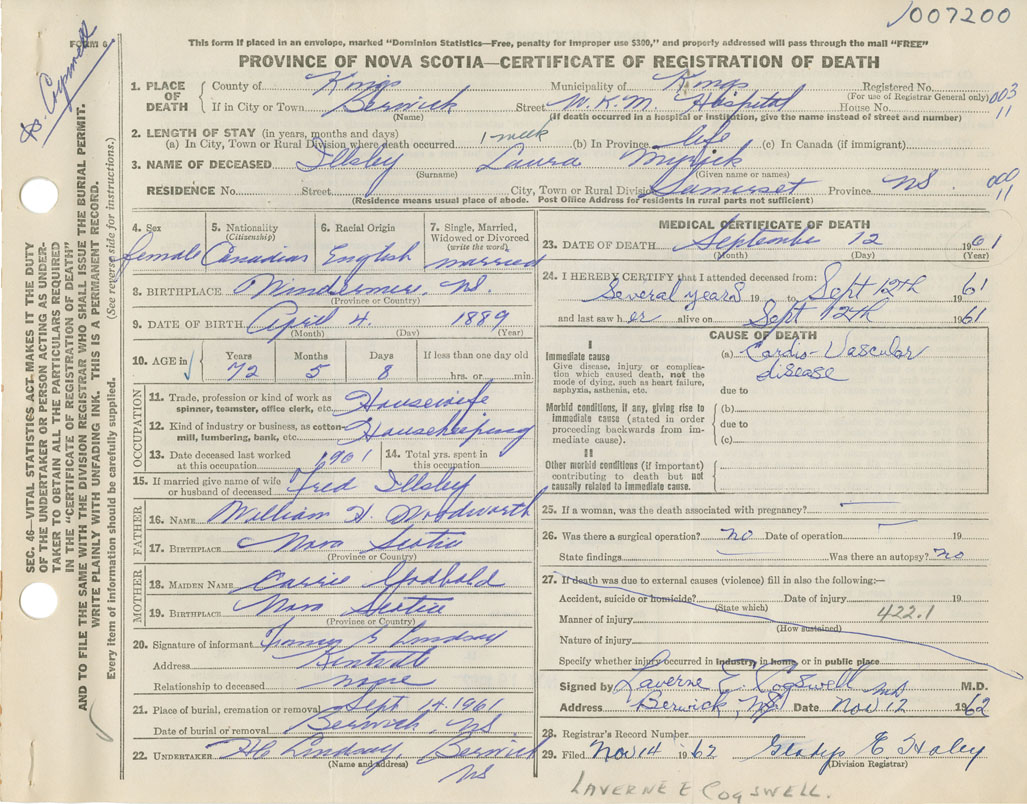 1007200
FORM 6
Dr. Cogswell
This form if placed in an envelope, marked "Dominion Statistics—Free, penalty for improper use $300," and properly addressed will pass through the mail "FREE"
PROVINCE OF NOVA SCOTIA—CERTIFICATE OF REGISTRATION OF DEATH
SEC. 46—VITAL STATISTICS ACT MAKES IT THE DUTY
OF THE UNDERTAKER OR PERSON ACTING AS UNDER-
TAKER TO OBTAIN ALL THE PARTICULARS REQUIRED
IN THE "CERTIFICATE OF REGISTRATION OF DEATH"
AND TO FILE THE SAME WITH THE DIVISION REGISTRAR WHO SHALL ISSUE THE BURIAL PERMIT.
WRITE PLAINLY WITH UNFADING INK. THIS IS A PERMANENT RECORD.
Every item of information should be carefully supplied. (See reverse side for instructions.)
1. PLACE OF DEATH County of Kings Municipality of Kings Registered No.
(For use of Registrar General only) 003
If in City or Town Berwick Street W.K.M. Hospital House No. 11
(Name) (If death occurred in a hospital or institution, give the name instead of street and number)
2. LENGTH OF STAY (in years, months and days)
(a) In City, Town or Rural Division where death occurred 1 week (b) In Province life (c) In Canada (if immigrant)
3. NAME OF DECEASED Illsley Laura Myrick
(Surname) (Given name or names)
RESIDENCE No. Street City, Town or Rural Division Somerset Province NS. 000 11
(Residence means usual place of abode. Post Office Address for residents in rural parts not sufficient)
4. Sex female
5. Nationality (Citizenship) Canadian
6. Racial Origin English
7. Single, Married, Widowed or Divorced (write the word) married
8. BIRTHPLACE Windermere, NS.
(Province or Country)
9. DATE OF BIRTH April 4. 1889
(Month) (Day) (Year)
10. AGE in Years 72 Months 5 Days 8 If less than one day old hrs. or min.
OCCUPATION
11. Trade, profession or kind of work as spinner, teamster, office clerk, etc. Housewife
12. Kind of industry or business, as cotton-mill, lumbering, bank, etc. Housekeeping
13. Date deceased last worked at this occupation 1961 14. Total yrs. spent in this occupation
15. If married give name of wife or husband of deceased Fred Illsley
FATHER
16. NAME William H. Woodworth
17. BIRTHPLACE Nova Scotia
(Province or Country)
MOTHER
18. MAIDEN NAME Carrie Godbold
19. BIRTHPLACE Nova Scotia
(Province or Country)
20. Signature of informant Lindsay
Address Kentville
Relationship to deceased none
21. Place of burial, cremation or removal Sept 14. 1961
Date of burial or removal Berwick, NS
22. UNDERTAKER HC Lindsay, Berwick NS
(Name and address)
MEDICAL CERTIFICATE OF DEATH
23. DATE OF DEATH September 12 1961
(Month) (Day) (Year)
24. I HEREBY CERTIFY that I attended deceased from:
Several years 19 to Sept 12th 1961
and last saw her alive on Sept 12th 1961
CAUSE OF DEATH
I
Immediate cause
Give disease, injury or complication which caused death, not the mode of dying, such as heart failure, asphyxia, asthenia, etc.
(a) Cardio-Vascular disease
due to
Morbid conditions, if any, giving rise to immediate cause (stated in order proceeding backwards from immediate cause).
(b)
due to
(c)
II
Other morbid conditions (if important) contributing to death but not causally related to immediate cause.
25. If a woman, was the death associated with pregnancy? —
26. Was there a surgical operation? no Date of operation — 19
State findings — Was there an autopsy? no
27. If death was due to external causes (violence) fill in also the following:—
Accident, suicide or homicide? Date of injury 19
(State which)
Manner of injury 422.1
(How sustained)
Nature of injury
Specify whether injury occurred in industry, in home, or in public place
Signed by Laverne E. Cogswell MD M.D.
Address Berwick, NS Date Nov 12 1962
28. Registrar's Record Number
29. Filed Nov 14 1962 Gladys E Haley
(Division Registrar)
LAVERNE E COGSWELL.